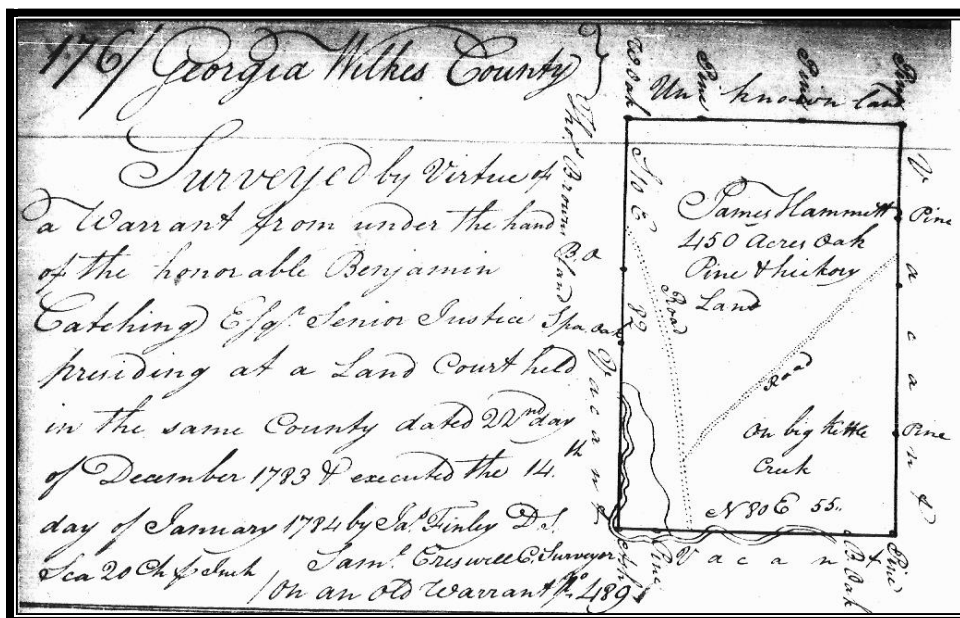 176/ Georgia Wilkes County }
Surveyed by Virtue of
a Warrant from under the hand
of the honorable Benjamin
Catching Esqr. Senior Justice
presiding at a Land Court held
in the same County dated 22nd day
of December 1783 & executed the 14th
day of January 1784 by Jas. Finley D.S.
Saml. Creswell C. Surveyor
Sca 20 Ch p Inch
/On an old Warrant No. 489
W Oak
Pine
Pine
Pine
Unknown land
Thos. Brown's land
B.O
Spa. Oak
Vacant
S 10 E 82
James Hammett
450 Acres Oak
Pine & hickory
Land
Road
Road
On big Kettle
Creek
N 80 E 55..
Pine
Pine
Vacant
Ash
Pine
Vacant
B Oak
Pine